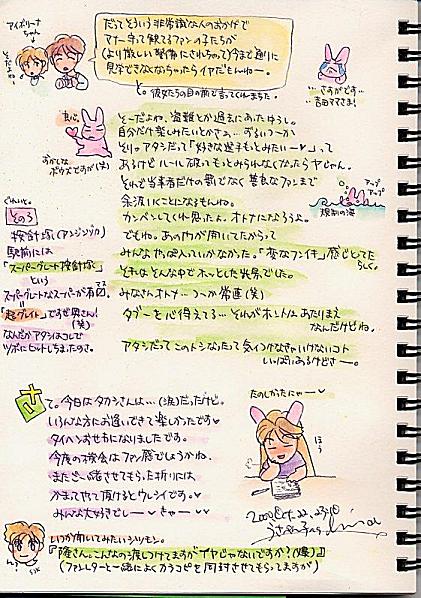 アイボリーナ
ちゃん
そーだよね
だってそういう非常識な人のおかげで
マナー守って観てるファンの子たちが
(より厳しい警備にされちゃって)今まで通りに
見学できなくなっちゃうなんてイヤだもんねー。
と。彼女たちの目の前で言ってくれました。
さすがです…
吉田ママさま!
良心。
おかしな
ポウズですが(笑)
そーだよね。盗難とか過去にあったゆうし。
自分だけ楽しみたいとかさぁ…ずるいっつーか
そりゃアタシだって「好きな選手もっとみたいー♥」って
あるけどルール破ってもっとみられなくなったらヤじゃん。
それで当事者だけの罰でなく善良なファンまで
余波いくことになるもんね。
カンベンしてくれと思ったよ。オトナになろうよ。
アップ
アップ
規制の海
ぐれいと。
その3
按針塚(アンジンヅカ)
駅前には
「スーパーグレート按針塚」
という
スーパーグレートなスーパーが有り
"超グレイト"ですぜ奥さん!
(笑)
なんだかアタシはココで
ツボにヒットしちまったのさ。
でもね。あの門が開いてたからって
みんなやっぱ入っていかなかった。「変なフンイキ」感じとってた
らしく。
それはそんな中でホッとした出来事でした。
みなさんオトナー つーか常連(笑)
タブーを心得えてる…それがホントはあたりまえ
なんだけどね。
アタシだってこのトシなったって気イつけなきゃいけないコト
いっぱいあるけどさー。
さて。今日はタカシさんは…(涙)だったけど。
いろんな方にお逢いできて楽しかったです♥
タイヘンお世話になりましたです。
今度の機会はファン感でしょうかね。
またご一緒させてもらった折りには
かまってやって頂けるとウレシイです。♥
みんな大好きでしー♥ きゃー♥♥
たのしかったにゃー♥
ほう
いつか聞いてみたいシツモン。
『隆さん、こんなの渡しつけてますがイヤじゃないですか?(爆)』
(ファンレターと一緒によくカラコピを同封させてもらってますが)